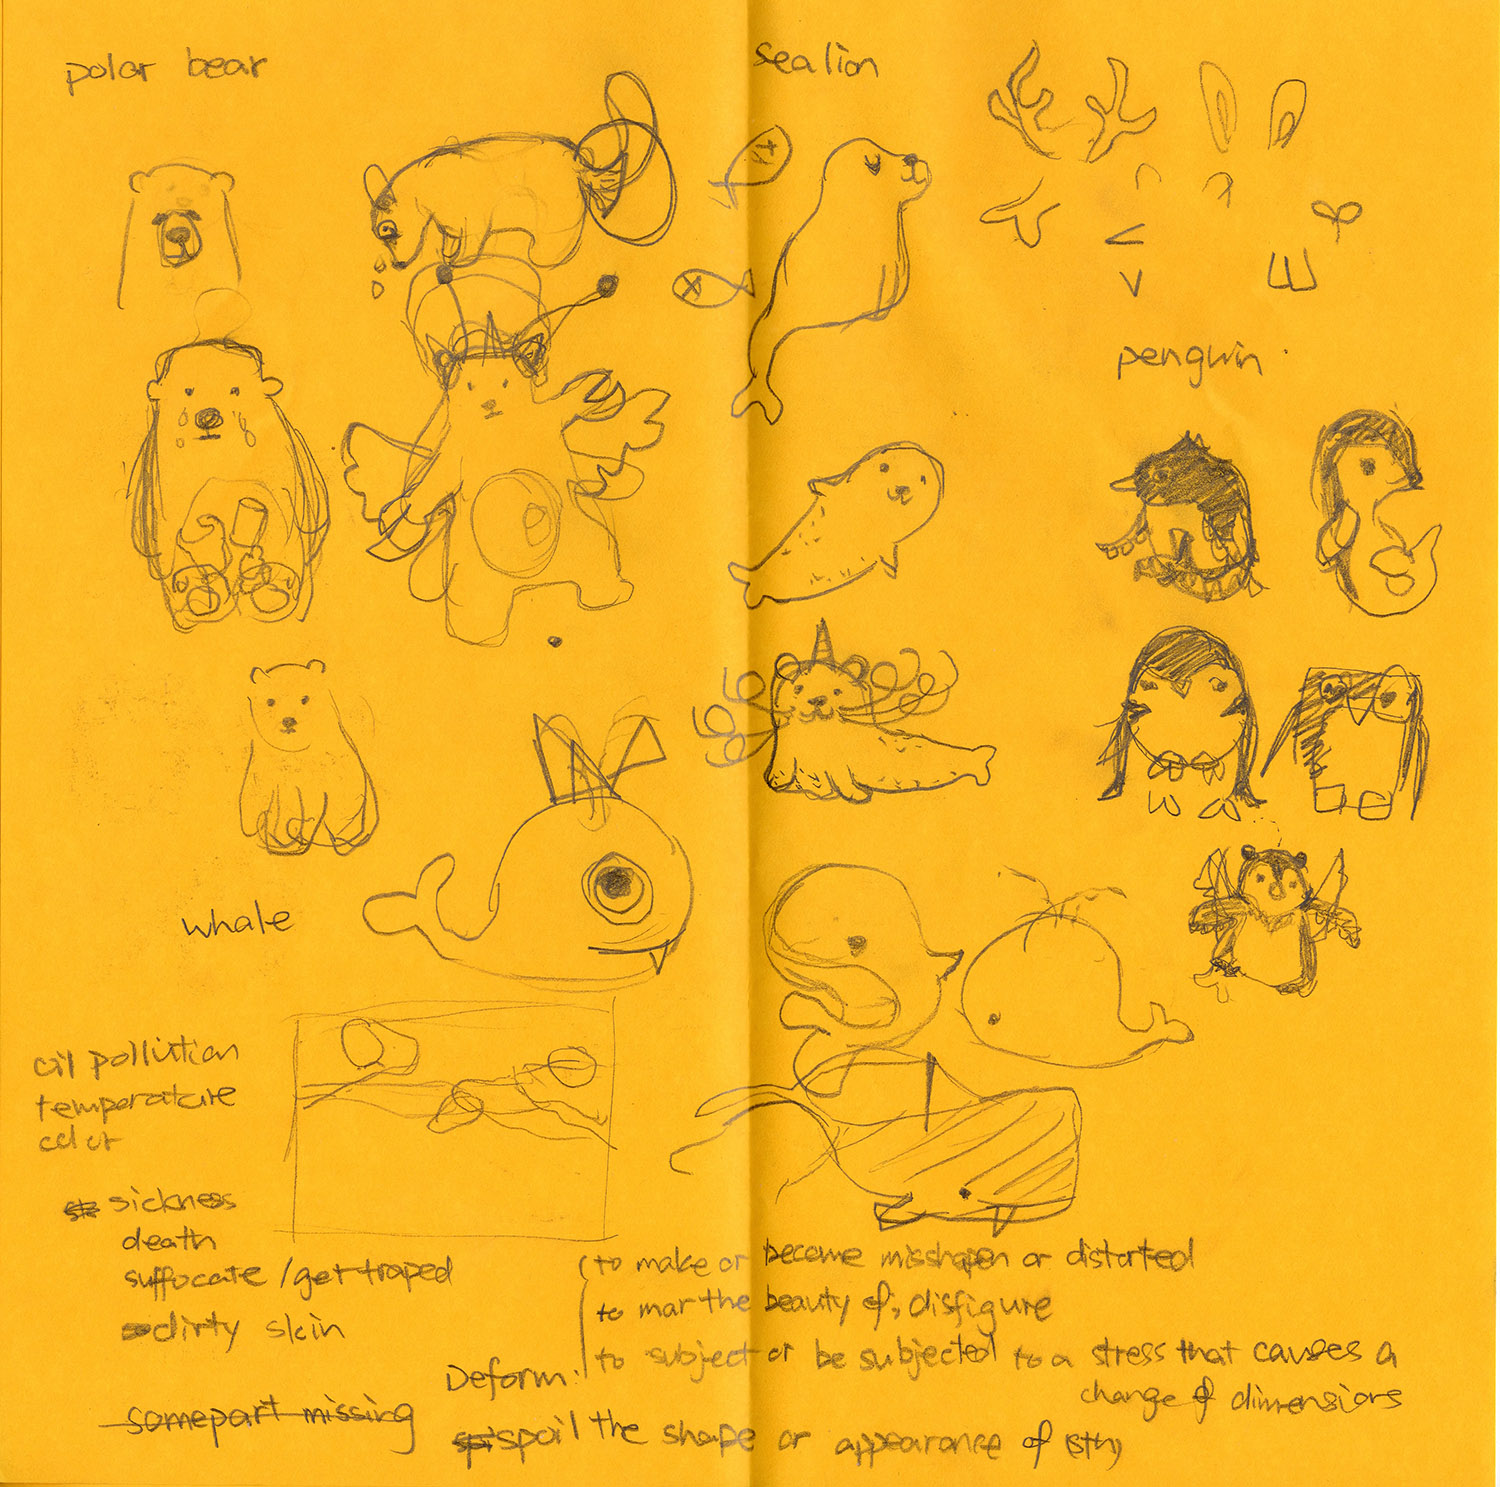 polar bear
sea lion
penguin
whale
oil pollution
temperature
color
sickness
death
suffocate / get traped
dirty skin
somepart missing
Deform:
to make or become misshapen or distorted
to mar the beauty of; disfigure
to subject or be subjected to a stress that causes a
change of dimensions
spoil the shape or appearance of (sth)